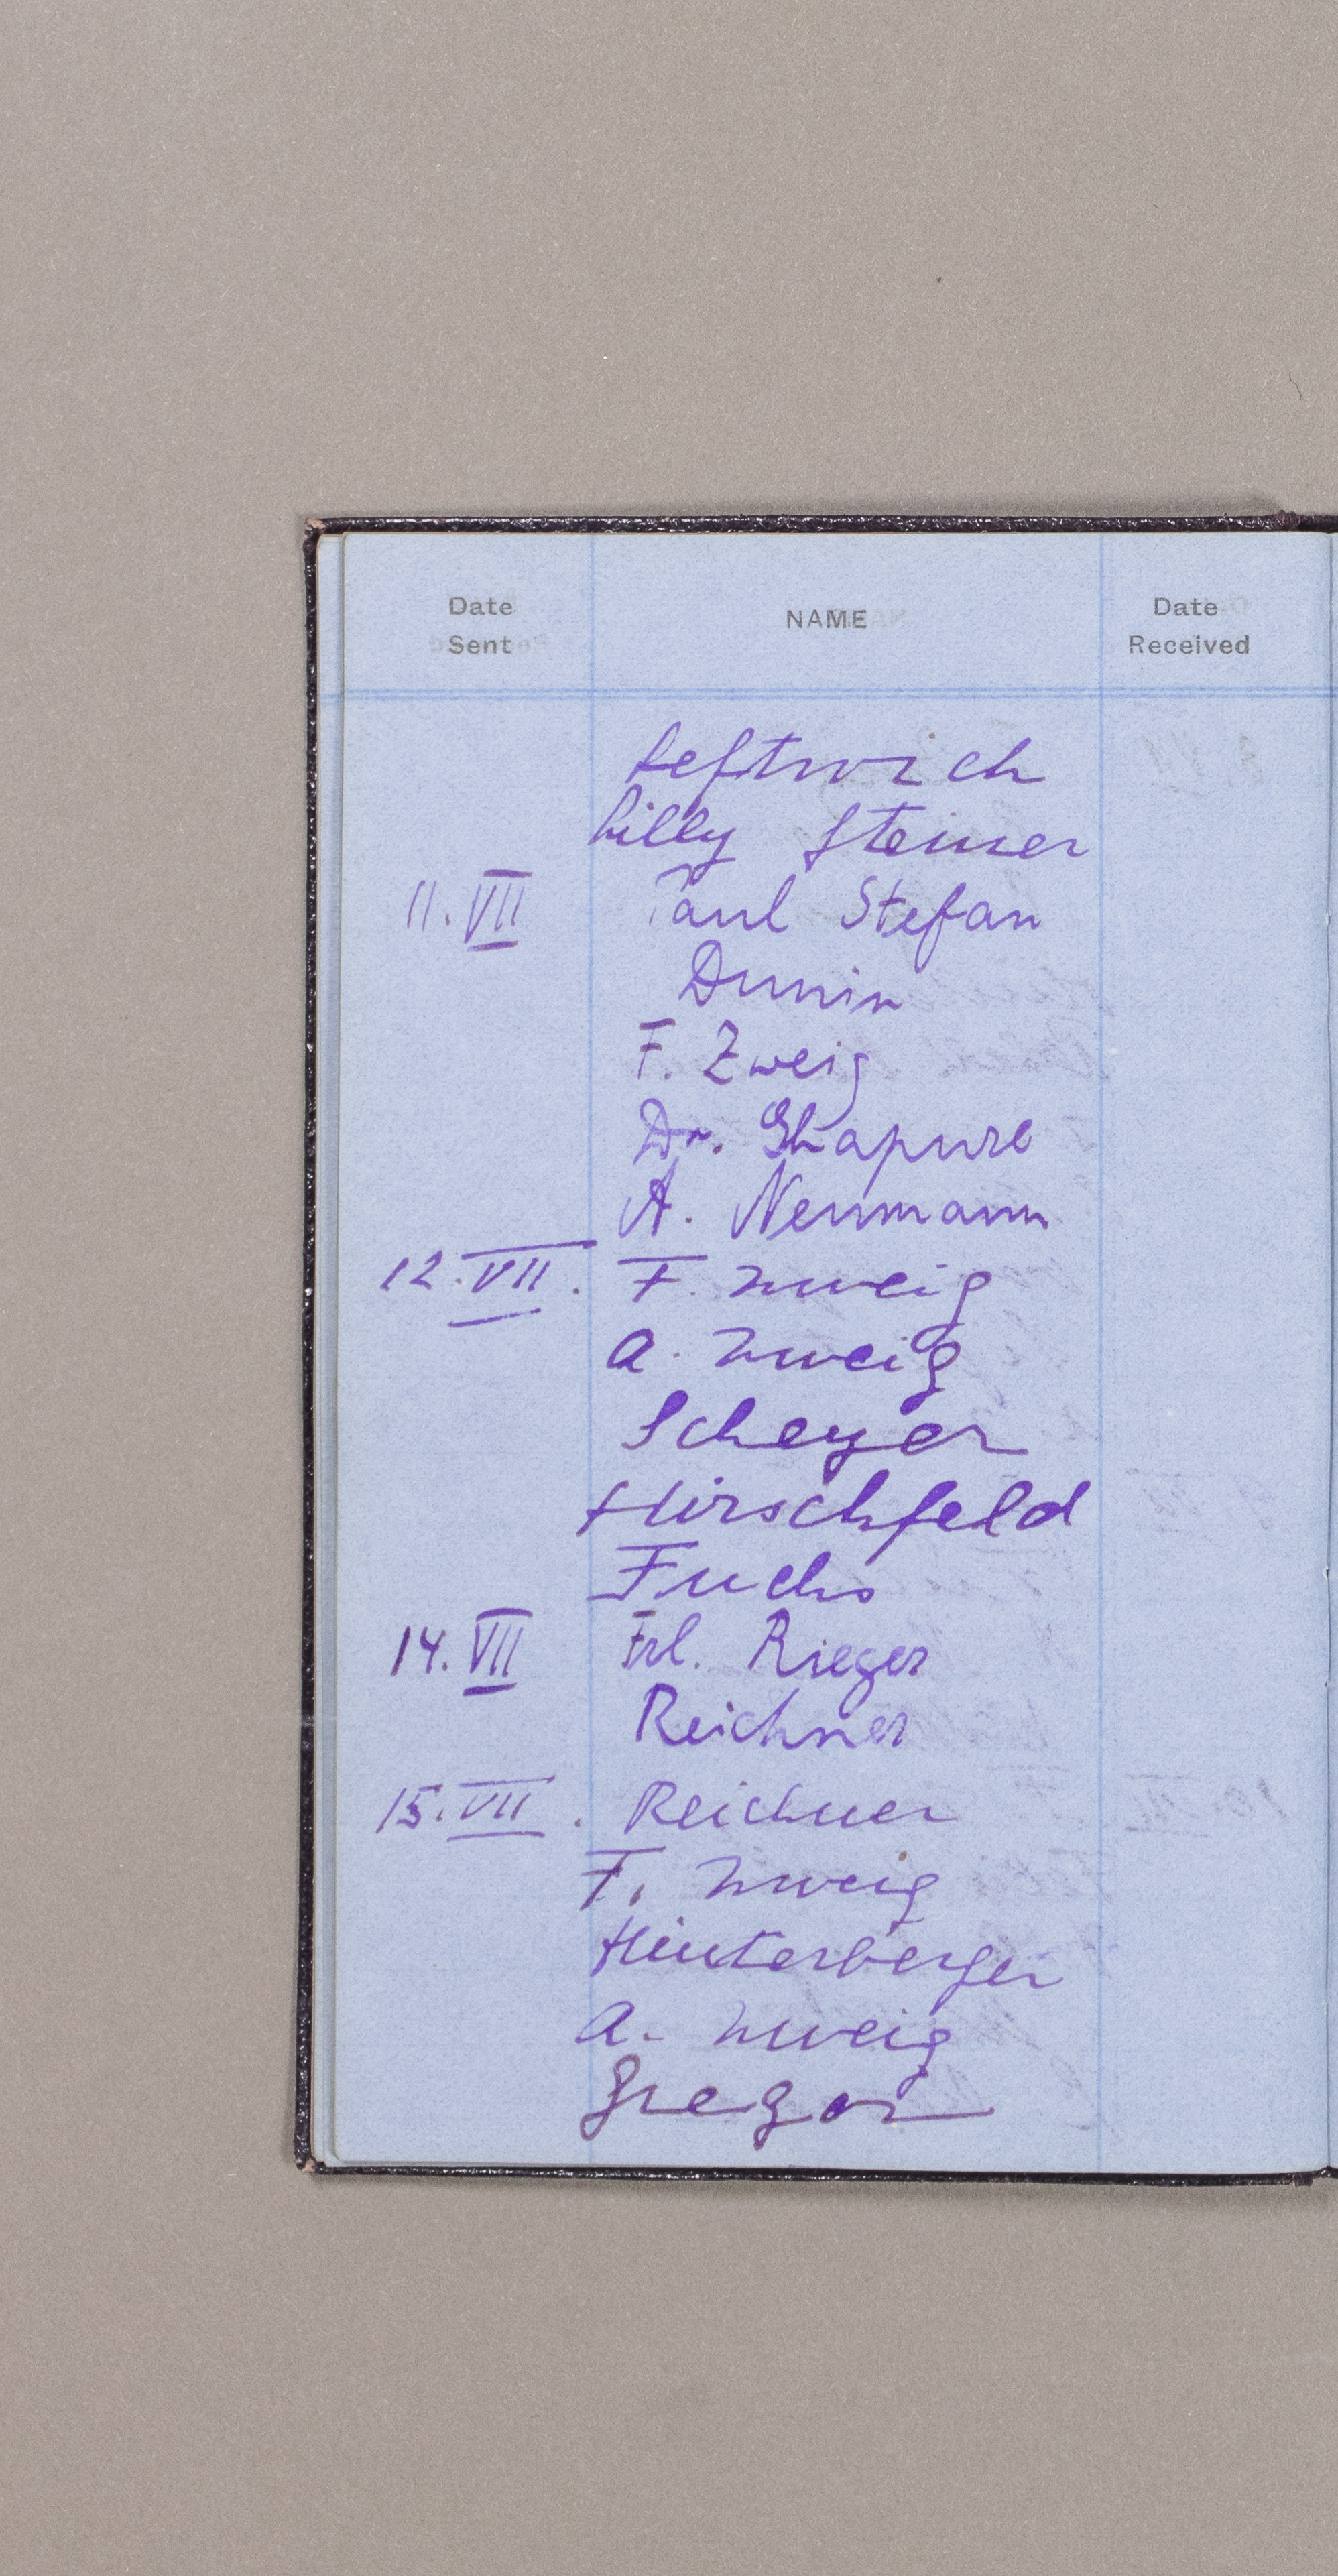 Date Sent NAME Date Received
Leftwich
Lilly Steiner
11. VII Paul Stefan
Dunin
F. Zweig
Dr. Shapire
A. Neumann
12. VII. F. Zweig
A. Zweig
Scheyer
Hirschfeld
Fuchs
14. VII Frl. Rieger
Reichner
15. VII. Reichner
F. Zweig
Hinterberger
A. Zweig
Gregor